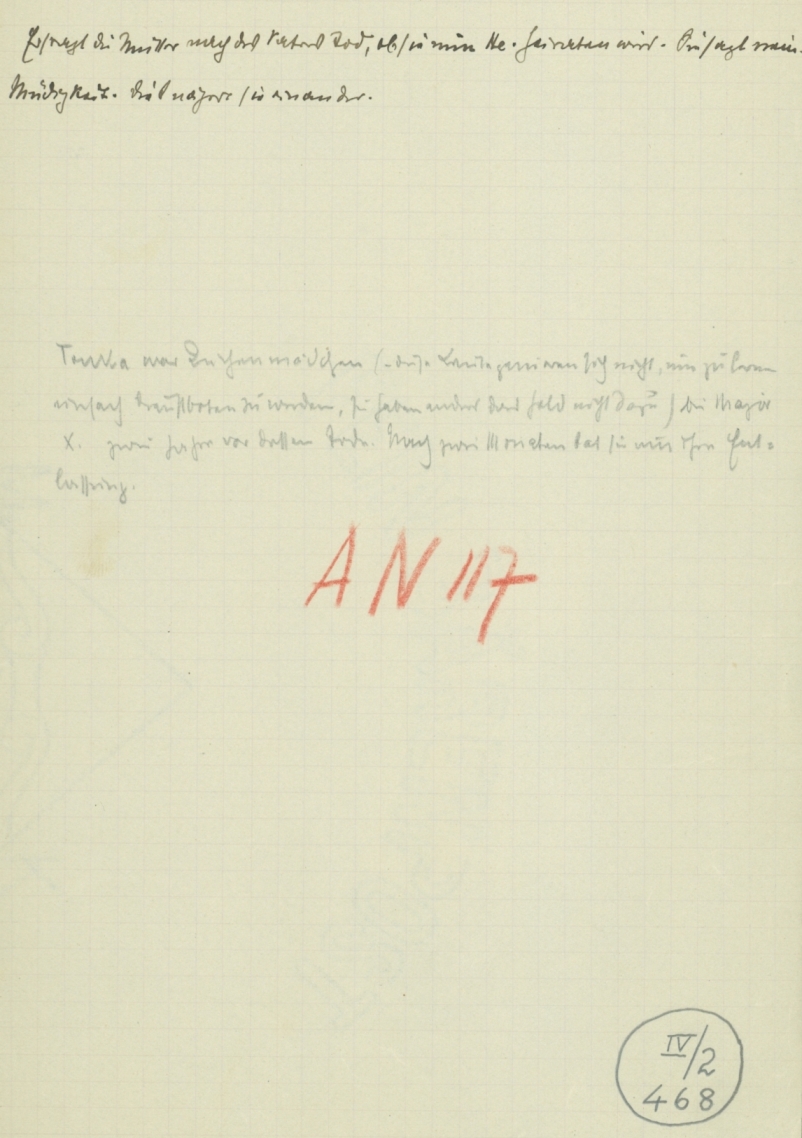 Er fragt die Mutter nach des Vaters Tod, ob sie nun He. heiraten wird. Sie sagt nein.
Müdigkeit. Dies nähert sie einander.
Tonka war Küchenmädchen (- diese Leute genieren sich nicht, um zu lernen
einfach Dienstboten zu werden, sie haben anders das Geld nicht dazu) bei Major
X. zwei Jahre vor dessen Tode. Nach zwei Monaten bat sie um ihre Ent-
lassung.
AN 117
IV/2
468